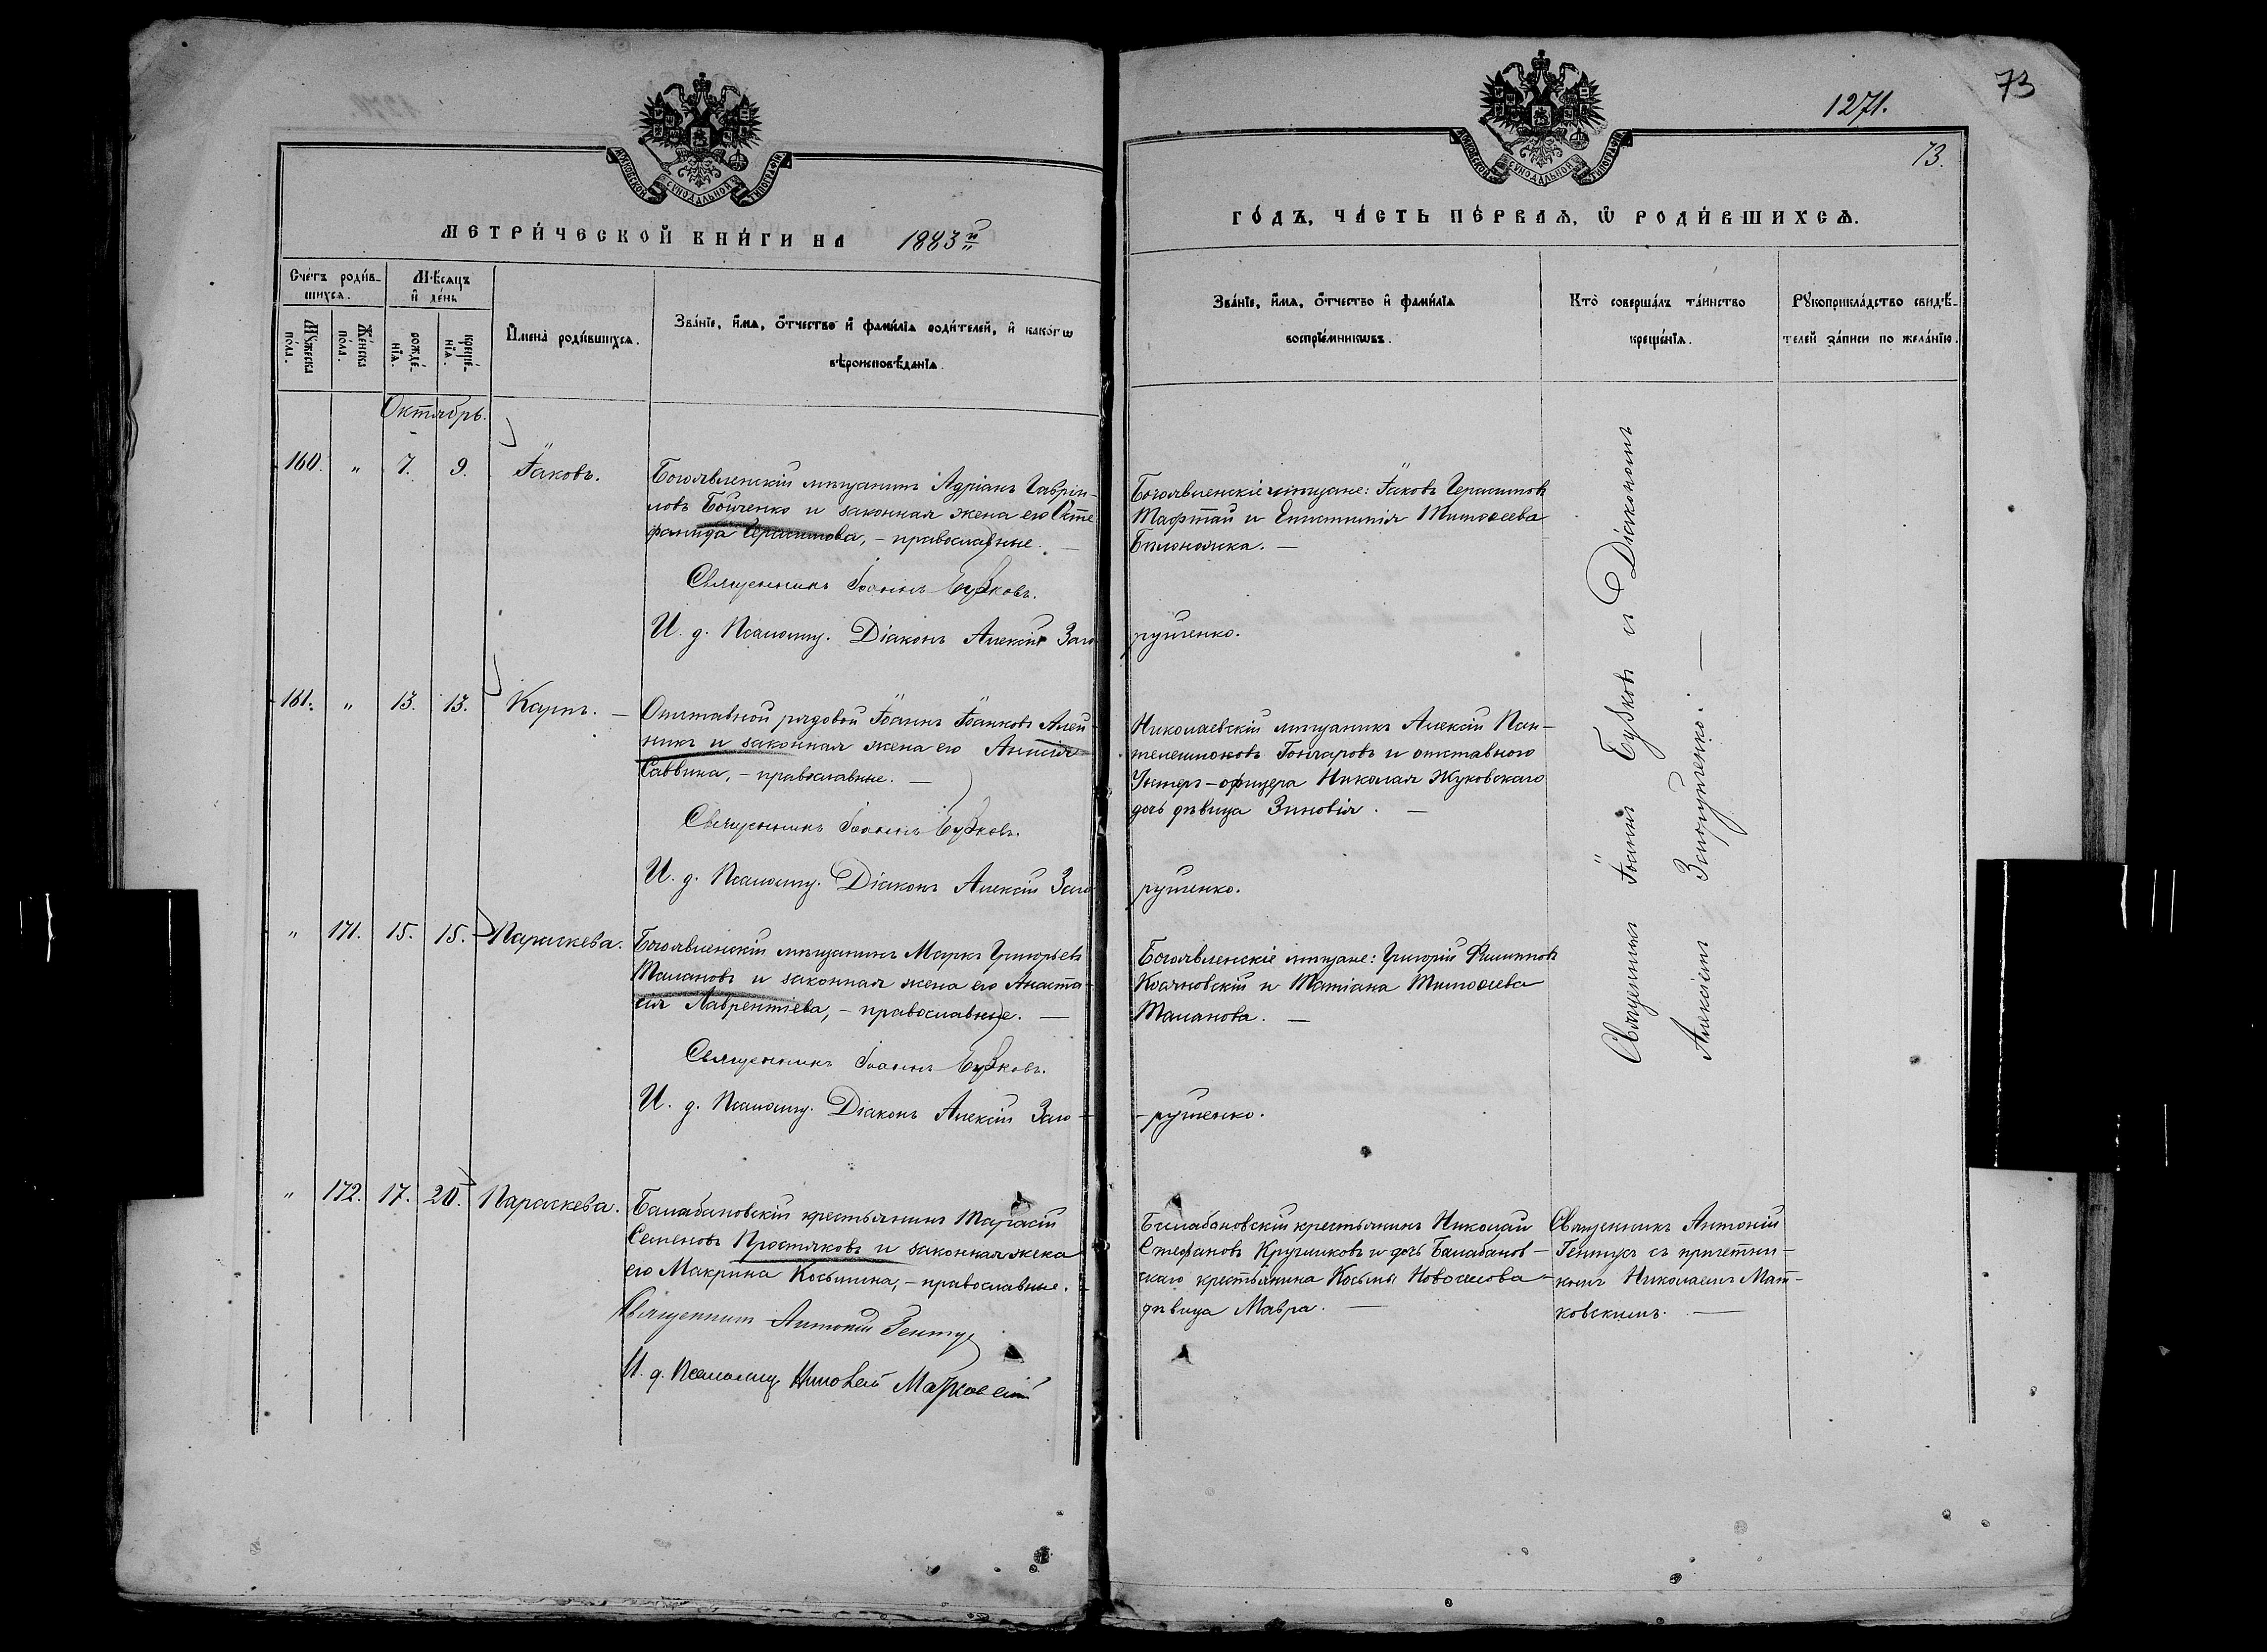 73
1271.
73.
МОСКОВСКОЙ СѴНОДАЛЬНОЙ ТИПОГРАФІИ
МОСКОВСКОЙ СѴНОДАЛЬНОЙ ТИПОГРАФІИ
МЕТРИ́ЧЕСКОЙ КНИ́ГИ НА 1883 й
ГО́ДЪ, ЧА́СТЬ ПЕ́РВАѦ, Ѡ РОДИ́ВШИХСѦ.
Сче́тъ роди́в-
шихсѧ.
Мѣ́сѧцъ
и́ де́нь
Мꙋ́жеска
по́ла.
Же́нска
по́ла.
рожде́-
нїѧ.
креще́-
нїѧ.
И҆мена̀ роди́вшихсѧ.
Зва́нїе, и҆́мѧ, о҆́тчество и҆ фами́лїѧ роди́телей, и҆ како́гѡ
вѣроисповѣ́данїѧ.
Зва́нїе, и҆́мѧ, о҆́тчество и҆ фами́лїѧ
воспрїе́мникѡвъ.
Кто̀ соверша́лъ та́инство
креще́нїѧ.
Рꙋкоприкла́дство свидѣ́-
телей за́писи по жела́нїю.
Октябрь.
160. " 7. 9. Іаковъ.
Богоявленскій мѣщанинъ Адріанъ Гаврии-
ловъ Бойченко и законная жена его Сте-
фанида Герасимова, - православные. —
Священникъ Іоаннъ Бузковъ.
И. д. Псаломщ. Діаконъ Алексій Заго
рушенко.
Богоявленскіе мѣщане: Іаковъ Герасимовъ
Тафтай и Епистимія Тимоѳеева
—
161. " 13. 13. Карпъ. —
Отставной рядовой Іоаннъ Іоанновъ Алей-
никъ и законная жена его Анисія
Саввина, - православные. —
Священникъ Іоаннъ Бузковъ.
И. д. Псаломщ. Діаконъ Алексій Заго
рушенко.
Николаевскій мѣщанинъ Алексій Пан-
телеимоновъ Гончаровъ и отставного
Унтеръ-офицера Николая Жуковскаго
дочь дѣвица Зиновія. —
" 171. 15. 15. Параскева.
Богоявленскій мѣщанинъ Маркъ Григорьевъ
Талановъ и законная жена его Анаста-
сія Лаврентіева, - православные. —
Священникъ Іоаннъ Бузковъ.
И. д. Псаломщ. Діаконъ Алексій Заго-
-рушенко.
Богоявленскіе мѣщане: Григорій Филиповъ
Косяновскій и Татіана Тимоѳеева
Таланова. —
Священникъ Іоаннъ Бузковъ съ Діакономъ
Алексіемъ Загорушенко. —
" 172. 17. 20. Параскева.
Балабановскій крестьянинъ Тарасій
Семеновъ Простяковъ и законная жена
его Макрина Косьмина, - православные.
Священникъ Антоній Гентуг
И. д. Псаломщ Николай Матковскій
Балабановскій крестьянинъ Николай
Стефановъ Кругликовъ и дочь Балабанов-
скаго крестьянина Косьмы Новоселова
дѣвица Мавра. —
Священникъ Антоній
съ причетни-
комъ Николаемъ Мат-
ковскимъ. —